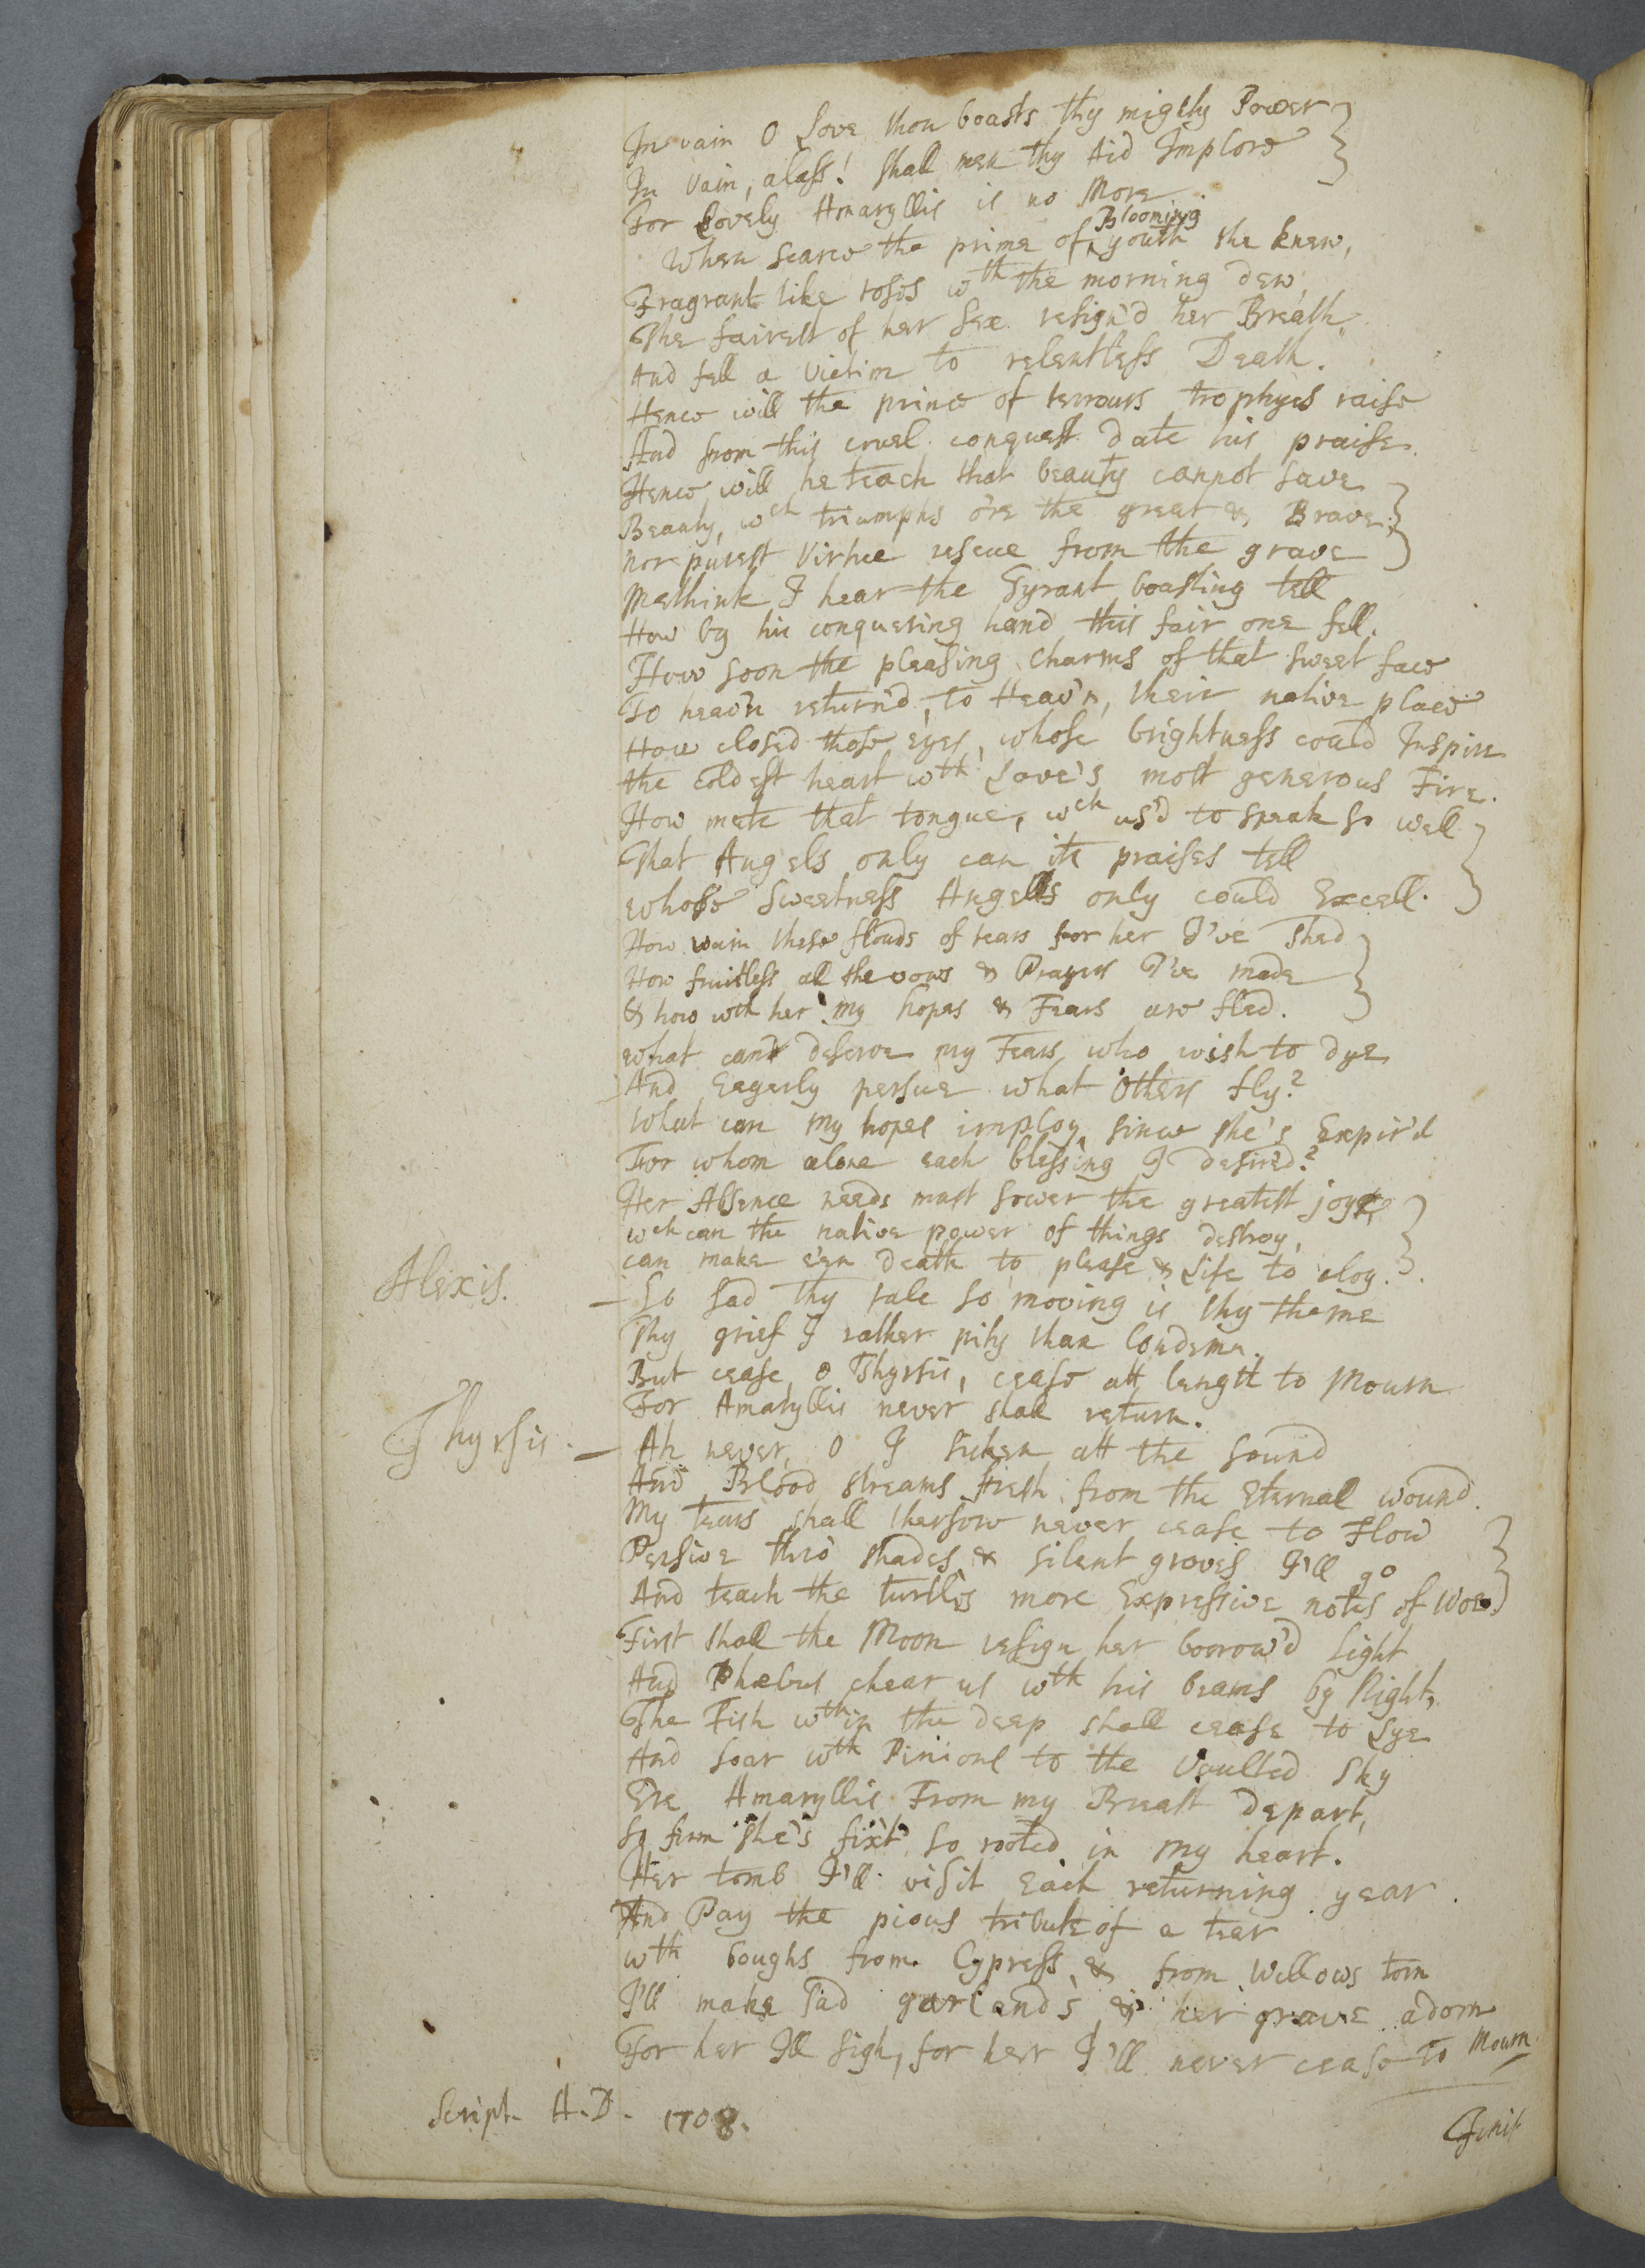 In vain O Love thou boasts thy mighty Power
In vain, alass! shall men thy Aid Implore
For Lovely Amaryllis is no More
Blooming
When scarce the prime of ^ youth she knew,
Fragrant like roses wth the morning dew,
The fairest of her sex resign'd her Breath,
And fell a victim to relentless Death.
Hence will the prince of terrours trophyes raise
And from this cruel conquest date his praise.
Hence will he teach that beauty cannot save
Beauty, wch triumphs o're the great & Brave;
nor purest Virtue rescue from the grave
Methink I hear the Tyrant boasting tell
How by his conquering hand this fair one fell.
How soon the pleasing charms of that sweet face
To heav'n return'd, to Heav'n, their native place
How closed those eyes, whose brightness could Inspire
the coldest heart wth Love's most generous Fire.
How mute that tongue, wch us'd to speak so well
That Angels only can its praises tell
whose sweetness Angells only could Excell.
How vain these flouds of tears for her I've shed
How fruitless all the vows & Prayers I've made
& how wth her my hopes & Fears are fled.
what can deserve my Fears who wish to dye
And Eagerly persue what others fly?
What can my hopes imploy since she's Expir'd
For whom alone each blessing I desir'd?
Her Absence needs must sower the greatest joy
wch can the native power of things destroy,
can make e'en death to please & Life to cloy.
Alexis. — So sad thy tale so moving is thy theme
Thy grief I rather pity than Condemn.
But cease, o Thyrsis, cease att length to Mourn
For Amaryllis never shall return.
Thyrsis. — Ah never, O I sicken att the sound
And Blood streams fresh from the Eternal wound.
My tears shall therfore never cease to Flow
Pensive thro' shades & silent groves I'll go
And teach the turtles more Expressive notes of Woe.
First shall the Moon resign her borrow'd Light
And Phœbus chear us wth his beams by Night,
The Fish wthin the deep shall cease to Lye
And soar wth Pinions to the Vaulted sky
Ere Amaryllis From my Breast depart,
So firm she's fix't so rooted in my heart.
Her tomb I'll visit Each returning year.
And Pay the pious tribute of a tear
wth boughs from Cypress & from Willows torn
I'll make sad garlands & her grave adorn
For her Ill sigh, for her I'll never cease to Mourn
Script. A.D. 1708.
Finis